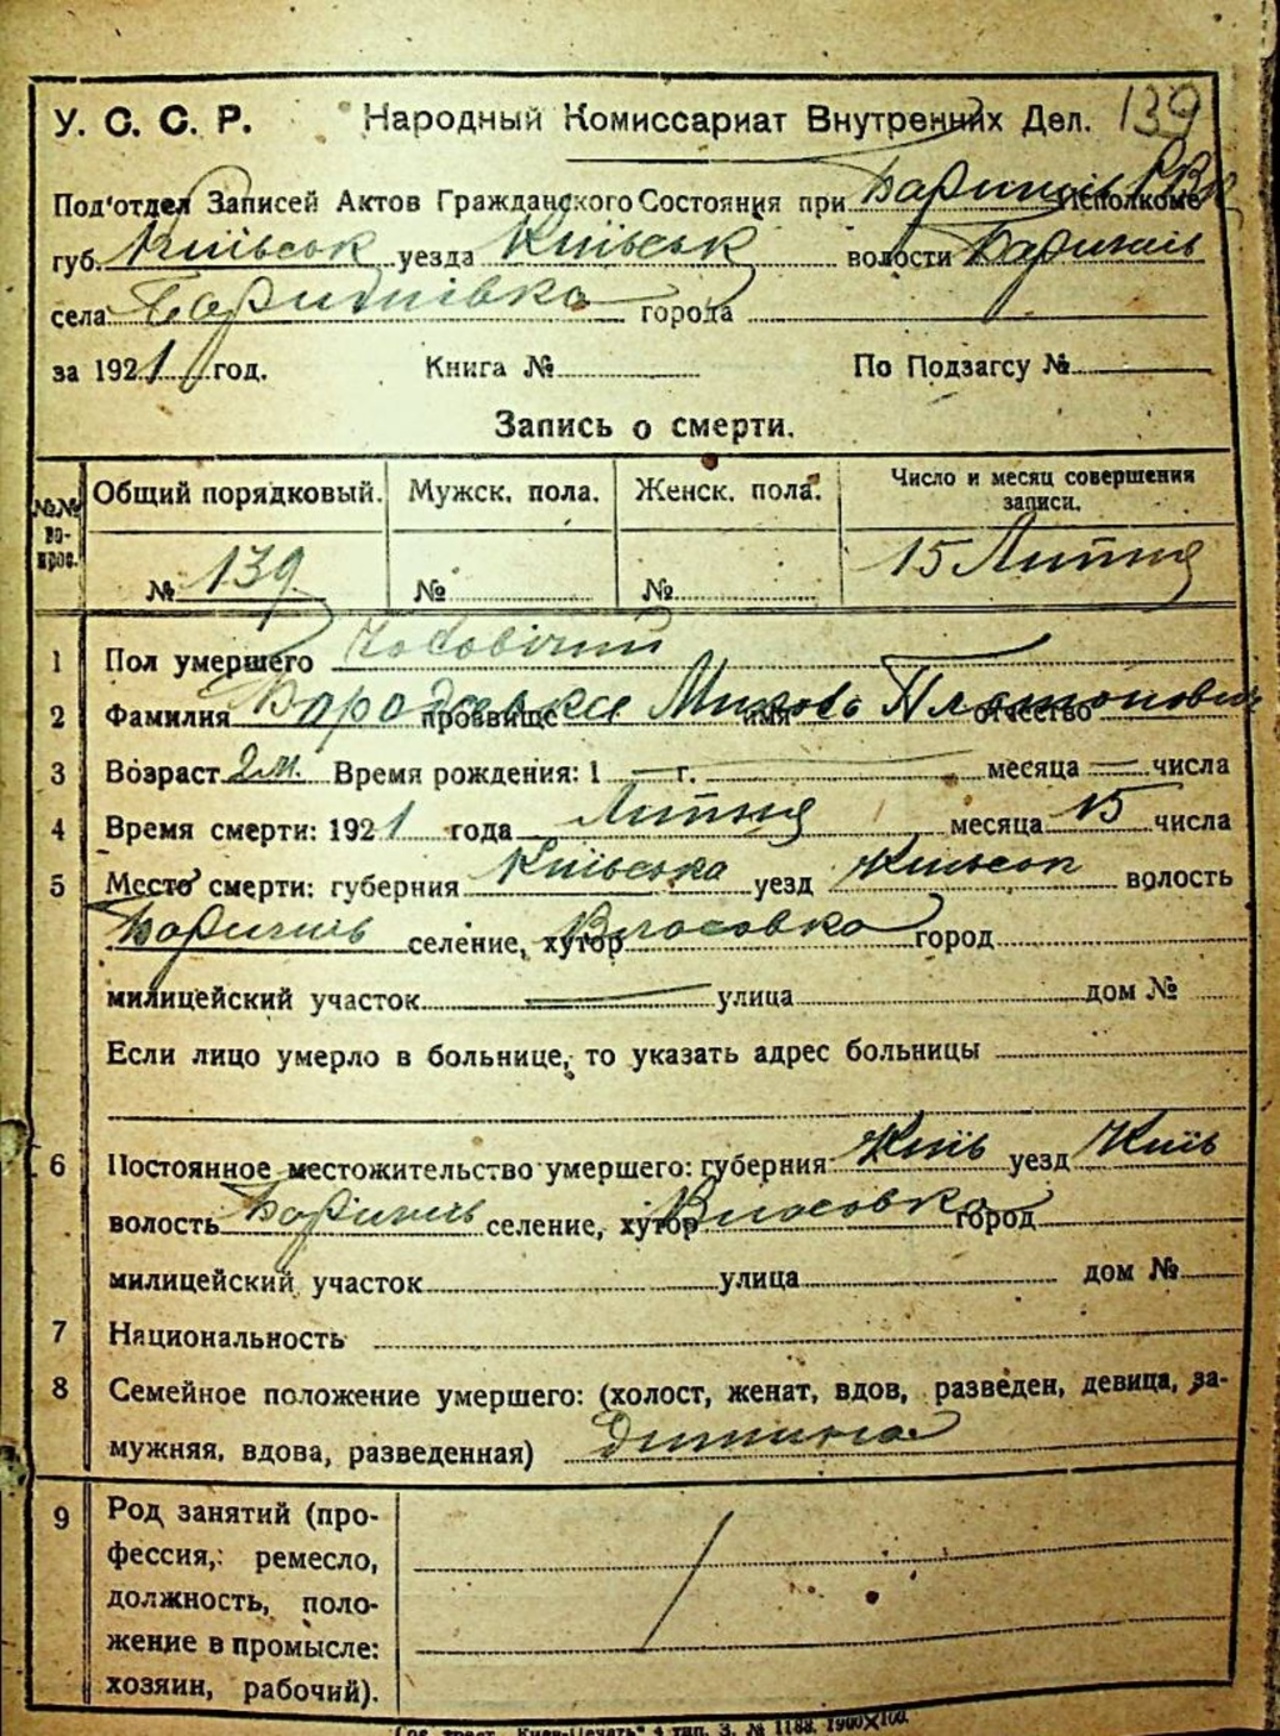 139
У. С. С. Р. Народный Комиссариат Внутренних Дел.
Под'отдел Записей Актов Гражданского Состояния при Исполкоме
губ. Київськ уезда Київськ волости
села города
за 1921 год. Книга № По Подзагсу №
Запись о смерти.
№№ во- прос. Общий порядковый. Мужск. пола. Женск. пола. Число и месяц совершения записи.
№ 139 № № 15 Липня
1 Пол умершего Чоловічий
2 Фамилия прозвище имя отчество Платонович
3 Возраст 2 м. Время рождения: 1 — г. — месяца — числа
4 Время смерти: 1921 года Липня месяца 15 числа
5 Место смерти: губерния Київська уезд Київськ волость
селение, хутор Власовка город
милицейский участок — улица дом №
Если лицо умерло в больнице, то указать адрес больницы
6 Постоянное местожительство умершего: губерния Київ уезд Київ
волость селение, хутор Власовка город
милицейский участок улица дом №
7 Национальность
8 Семейное положение умершего: (холост, женат, вдов, разведен, девица, за-
мужняя, вдова, разведенная) Дитина
9 Род занятий (про-
фессия, ремесло,
должность, поло-
жение в промысле:
хозяин, рабочий).
"Киев-Печать" 4 тип. З. № 1188. 1900×100.